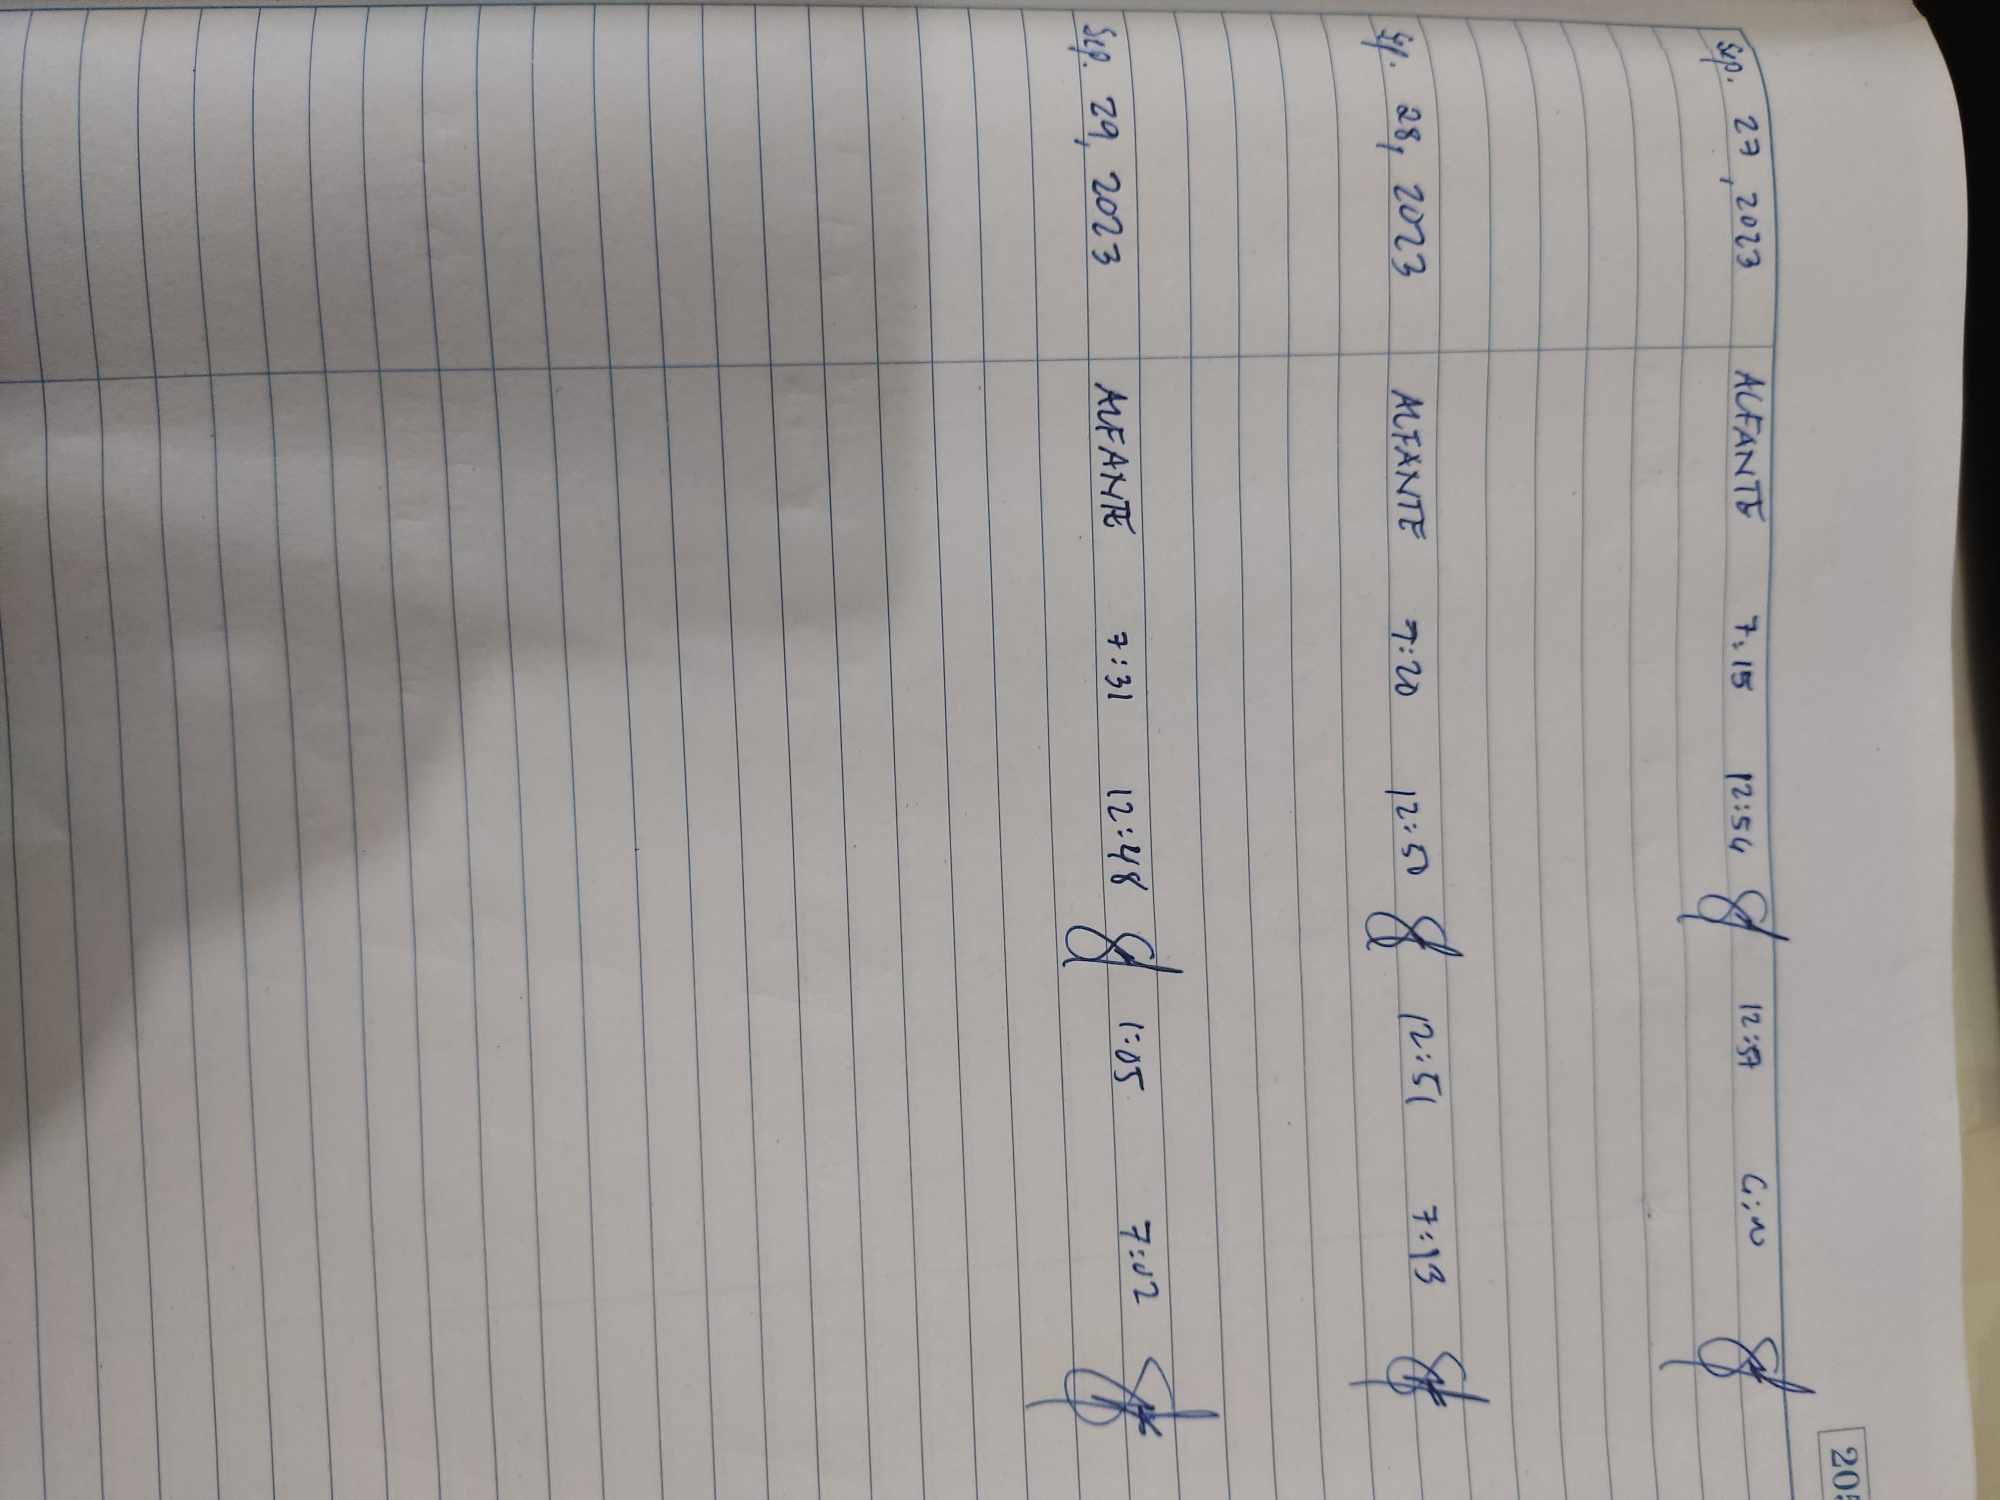 Sep. 27, 2023 ALFANTE 7:15 12:54 12:57
Sep. 28, 2023 ALFANTE 7:20 12:50 12:51 7:13
Sep. 29, 2023 ALFANTE 7:31 12:48 1:05 7:02